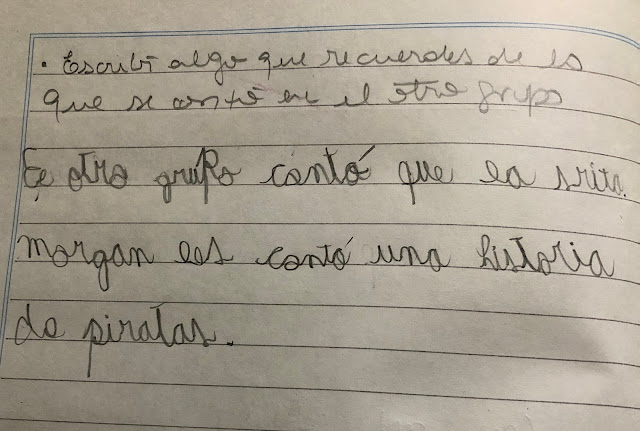 • Escribí algo que recuerdes de lo
que se contó en el otro grupo
El otro grupo contó que la srita.
morgan les contó una historia
de piratas.